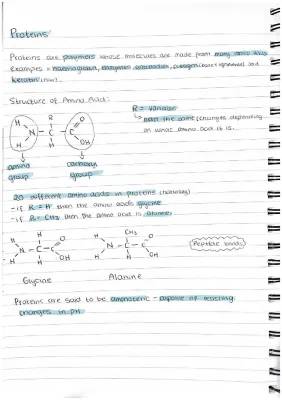 Proteins
Proteins are polymers whose molecules are made from many amino acids
Examples = haemoglobin, enzymes, and
keratin (hair).
Structure of Amino Acid:
R = Variable
not the same (changes depending
on what amino acid it is.
H R O
N - C - C
H H OH
amino carboxyl
group group
20 different amino acids in proteins (naturally)
- if R = H then the amino acid's glycine
- if R = CH3 then the amino acid is alanine.
H H O H CH3 O
N - C - C N - C - C
H H OH H H OH
Peptide bonds
Glycine Alanine
Proteins are said to be amphoteric - capable of resisting
changes in pH.